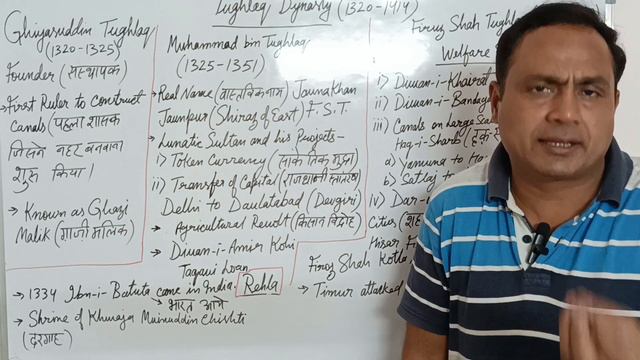 Tughlaq Dynasty (1320-1414)
Ghiyasuddin Tughlaq
(1320-1325)
Founder (संस्थापक)
→ First Ruler to Construct
Canals (पहला शासक
जिसने नहर बनवाना
शुरू किया।
→ Known as Ghazi
Malik (ग़ाज़ी मलिक)
Muhammad bin Tughlaq
(1325-1351)
→ Real Name (वास्तविक नाम) Jauna Khan
Jaunpur (Shiraz of East) F.S.T.
→ Lunatic Sultan and his Projects-
i) Token Currency (सांकेतिक मुद्रा)
ii) Transfer of Capital (राजधानी स्थानांतरण)
Delhi to Daulatabad (Devgiri)
→ Agricultural Revolt (किसान विद्रोह)
→ Diwan-i-Amir Kohi
Taqavi Loan
→ 1334 Ibn-i-Batuta came in India. Rehla
→ भारत आये
→ Shrine of Khwaja Muinuddin Chishti
(दरगाह)
Firuz Shah Tughl
Welfare
i) Diwan-i-Khairat
ii) Diwan-i-Bandaga
iii) Canals on Large Sca
Haq-i-Sharb (हक़
a) Yamuna to H
b) Satlaj to
iv) Dar-
Cities (शह
Hisar F
Firuz Shah Kotla
→ Timur attacked